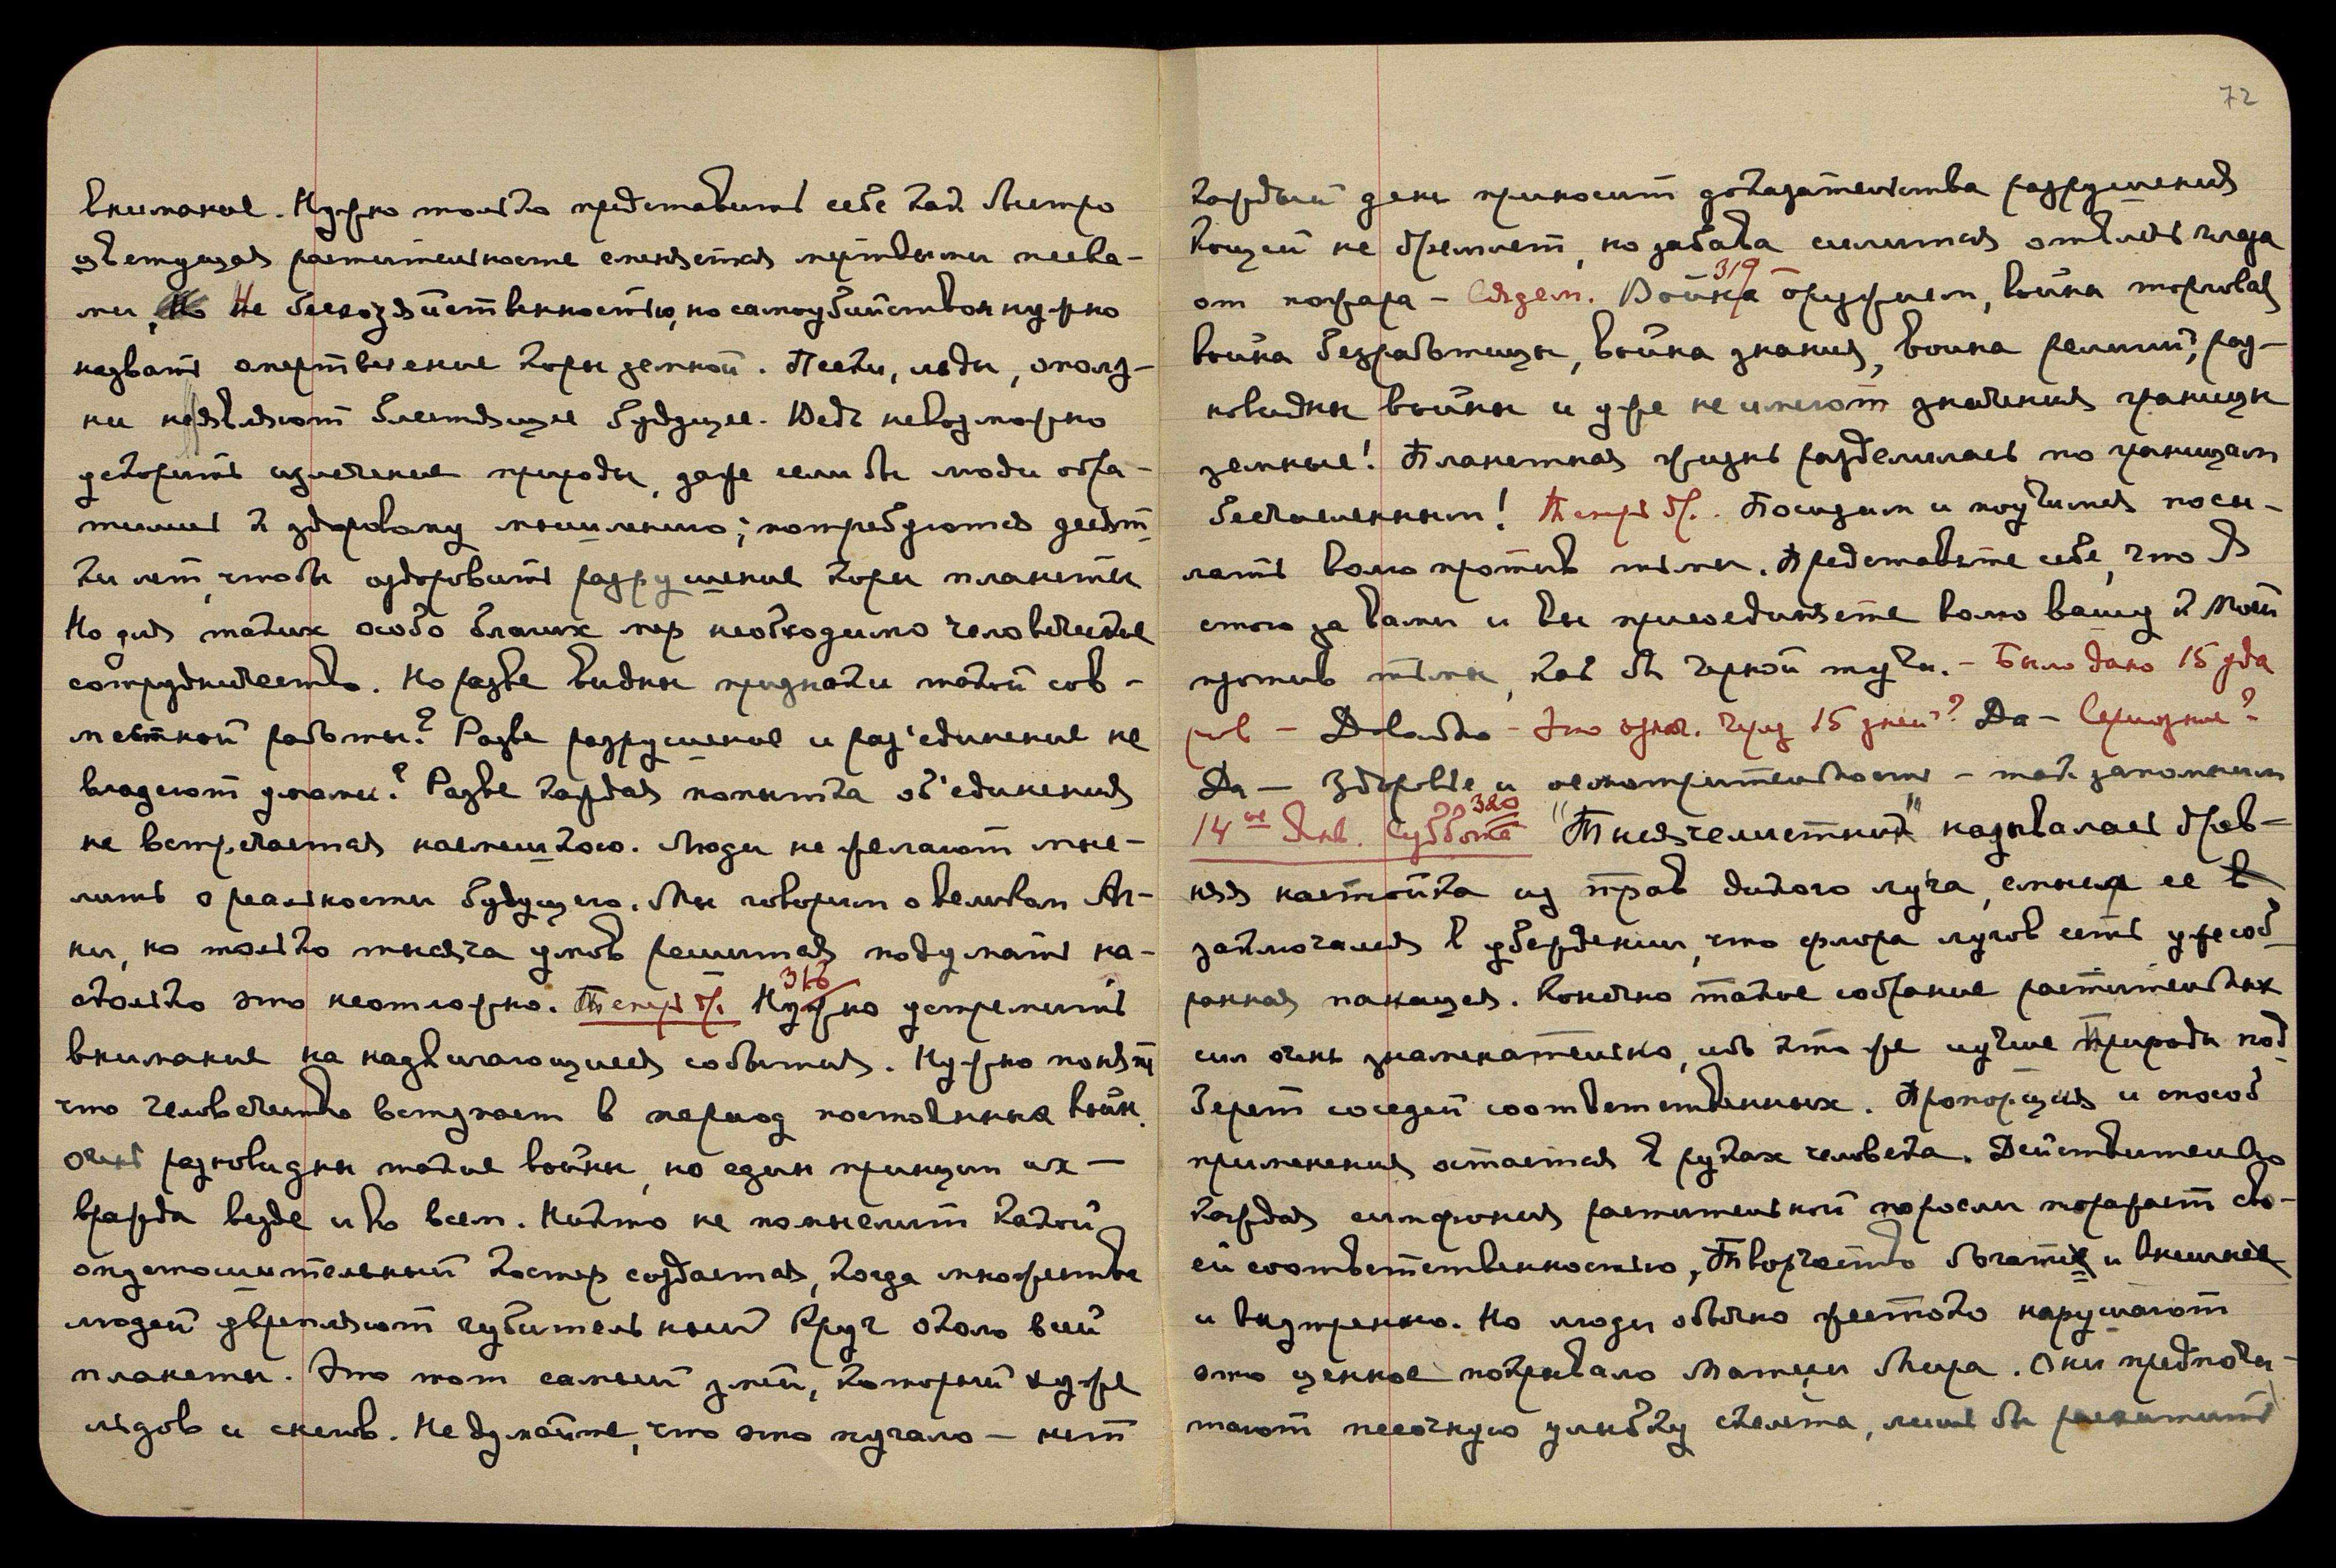 внимание. Нужно только представить себе как быстро
цветущая растительность сменяется мертвыми песка-
ми, Не бесхозяйственностью, но самоубийством нужно
назвать омертвление коры земной. Пески, льды, ополз-
ни не являют блестящее будущее. Ведь невозможно
ускорить излечение природы, даже если бы люди обра-
тились к здоровому мышлению; потребуются десят
ки лет, чтобы оздоровить разрушение коры планеты
Но для таких особо благих мер необходимо человеческое
сотрудничество. Но разве видны признаки такой сов-
местной работы? Разве разрушение и раз'единение не
владеют умами? Разве каждая попытка об'единения
не встречается насмешкою. Люди не желают мыс-
лить о реальности будущего. Мы говорим о великом Аг-
ни, но только тысяча умов решится подумать на-
сколько это неотложно. Теперь др. 318 Нужно устремить
внимание на надвигающиеся события. Нужно понять
что человечество вступает в период постоянных войн.
очень разновидны такие войны, но един принцип их —
вражда везде и ко всем. Никто не помыслит какой
опустошительный костер создается, когда множества
людей укрепляют губительный круг около всей
планеты. Это тот самый змей, который хуже
льдов и снегов. Не думайте, что это пугало — нет
72
каждый день приносит доказательства разрушения
Кощей не дремлет, но забава силится отвлечь глаза
от пожара — Сядем. 319 Война оружием, война торговая
война безработицы, война знания, война религий, раз-
новидны войны и уже не имеют значения границы
земные! Планетная жизнь разделилась по границам
бесчисленным! Теперь др. Посидим и поучимся посы-
лать волю против тьмы. Представьте себе, что Я
стою за вами и вы присоединяете волю вашу к Моей
против тьмы, как бы черной тучи. — Было дано 15 уда
ров — Довольно — Это означ. через 15 дней? Да — Серьезные?
Да — Здоровье и осмотрительность — так запомним
14ое Янв. Суббота 320 "Тысячелистник" называлась древ-
няя настойка из трав дикого луга, смысл ее
заключался в убеждении, что флора лугов есть уже соб
ранная панацея. Конечно такое собрание растительных
сил очень знаменательно, ибо кто же лучше Природы под
берет соседей соответственных. Пропорция и способ
применения остается в руках человека. Действительно
каждая симфония растительной поросли поражает сво-
ей соответственностью, Творчество богатое и внешнее
и внутренно. Но люди обычно жестоко нарушают
это ценное покрывало Матери Мира. Они предпочи-
тают песочную улыбку скелета, лишь бы расхитить